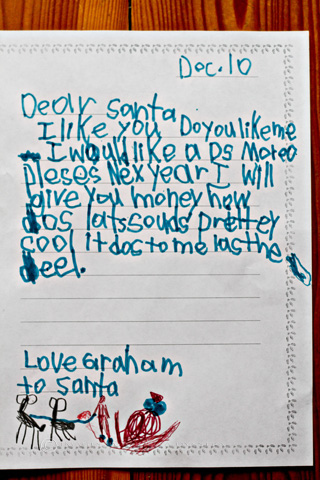 Dec. 10
Dear santa
I like you Do you like me
I would like a Ds Mateo
pleses Nex year I will
give you money how
dos lats souds prettey
cool it dos to me las the
deel.
Love Graham
to santa